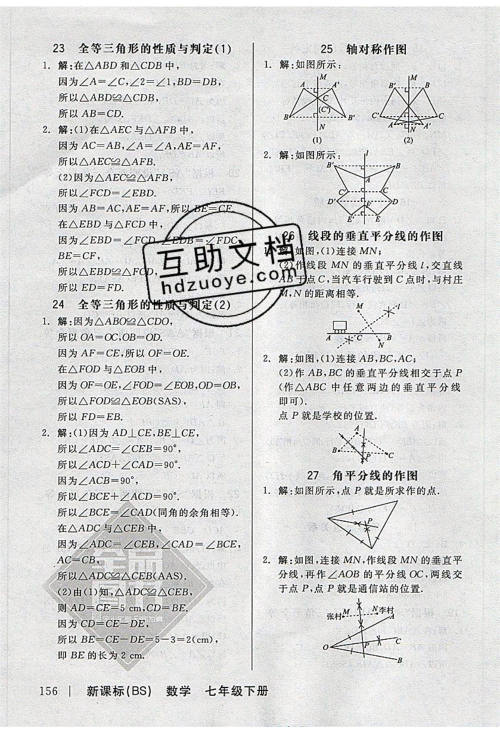 23 全等三角形的性质与判定(1)
1. 解:在△ABD和△CDB中,
因为∠A=∠C,∠2=∠1,BD=DB,
所以△ABD≌△CDB,
所以AB=CD.
2. 解:(1)在△AEC与△AFB中,
因为AC=AB,∠A=∠A,AE=AF,
所以△AEC≌△AFB.
(2)因为△AEC≌△AFB,
所以∠FCD=∠EBD.
因为AB=AC,AE=AF,所以BE=CF.
在△EBD与△FCD中,
因为∠EBD=∠FCD,∠EDB=∠FDC,
BE=CF,
所以△EBD≌△FCD,
所以ED=FD.
24 全等三角形的性质与判定(2)
1. 解:因为△ABO≌△CDO,
所以OA=OC,OB=OD.
因为AF=CE,所以OF=OE.
在△FOD与△EOB中,
因为OF=OE,∠FOD=∠EOB,OD=OB,
所以△FOD≌△EOB(SAS),
所以FD=EB.
2. 解:(1)因为AD⊥CE,BE⊥CE,
所以∠ADC=∠CEB=90°,
所以∠ACD+∠CAD=90°.
因为∠ACB=90°,
所以∠BCE+∠ACD=90°,
所以∠BCE=∠CAD(同角的余角相等).
在△ADC与△CEB中,
因为∠ADC=∠CEB,∠CAD=∠BCE,
AC=CB,
所以△ADC≌△CEB(AAS).
(2)由(1)知,△ADC≌△CEB,
则AD=CE=5 cm,CD=BE.
因为CD=CE-DE,
所以BE=CE-DE=5-3=2(cm),
即BE的长为2 cm.
25 轴对称作图
1. 解:如图所示:
(1) (2)
2. 解:如图所示:
26 线段的垂直平分线的作图
1. 解:如图,(1)连接MN;
(2)作线段MN的垂直平分线l,交直线
AB于点C,当汽车行驶到C点时,与村庄
M,N的距离相等.
2. 解:如图,(1)连接AB,BC,AC;
(2)作AB,BC的垂直平分线相交于点P
(作△ABC中任意两边的垂直平分线
即可).
点P就是学校的位置.
27 角平分线的作图
1. 解:如图所示,点P就是所求作的点.
2. 解:如图,连接MN,作线段MN的垂直平
分线,再作∠AOB的平分线OC,两线交
于点P,点P就是通信站的位置.
张村 M N 李村
互助文档
hdzuoye.com
156 | 新课标(BS) 数学 七年级下册